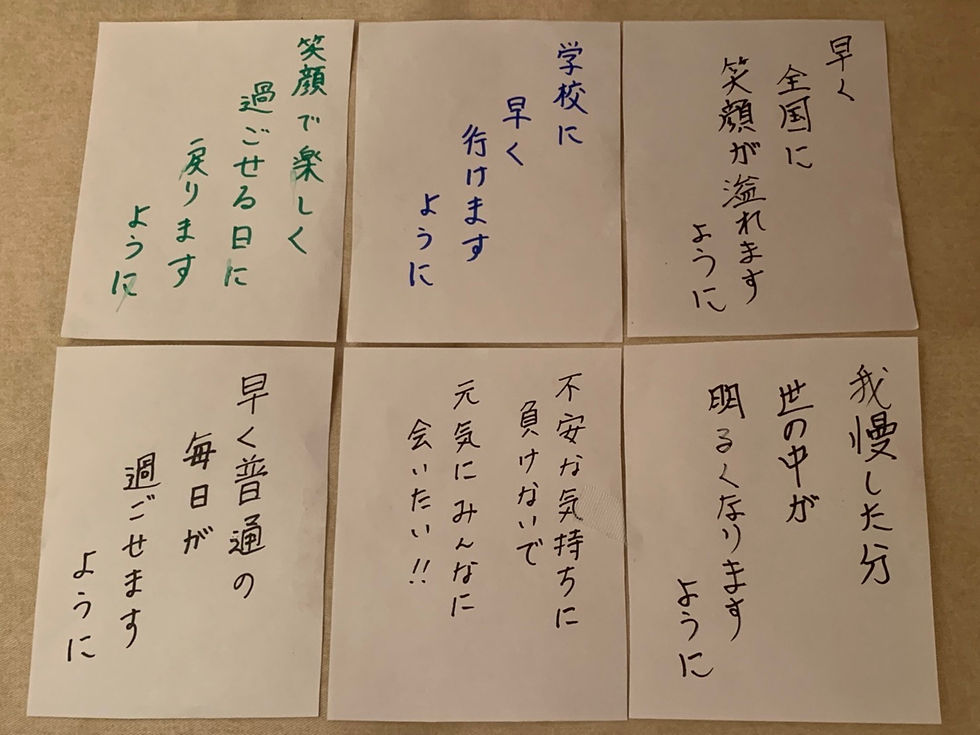 早く
全国に
笑顔が溢れます
ように
学校に
早く
行けます
ように
笑顔で楽しく
過ごせる日に
戻ります
ように
我慢した分
世の中が
明るくなります
ように
不安な気持ちに
負けないで
元気にみんなに
会いたい!!
早く普通の
毎日が
過ごせます
ように